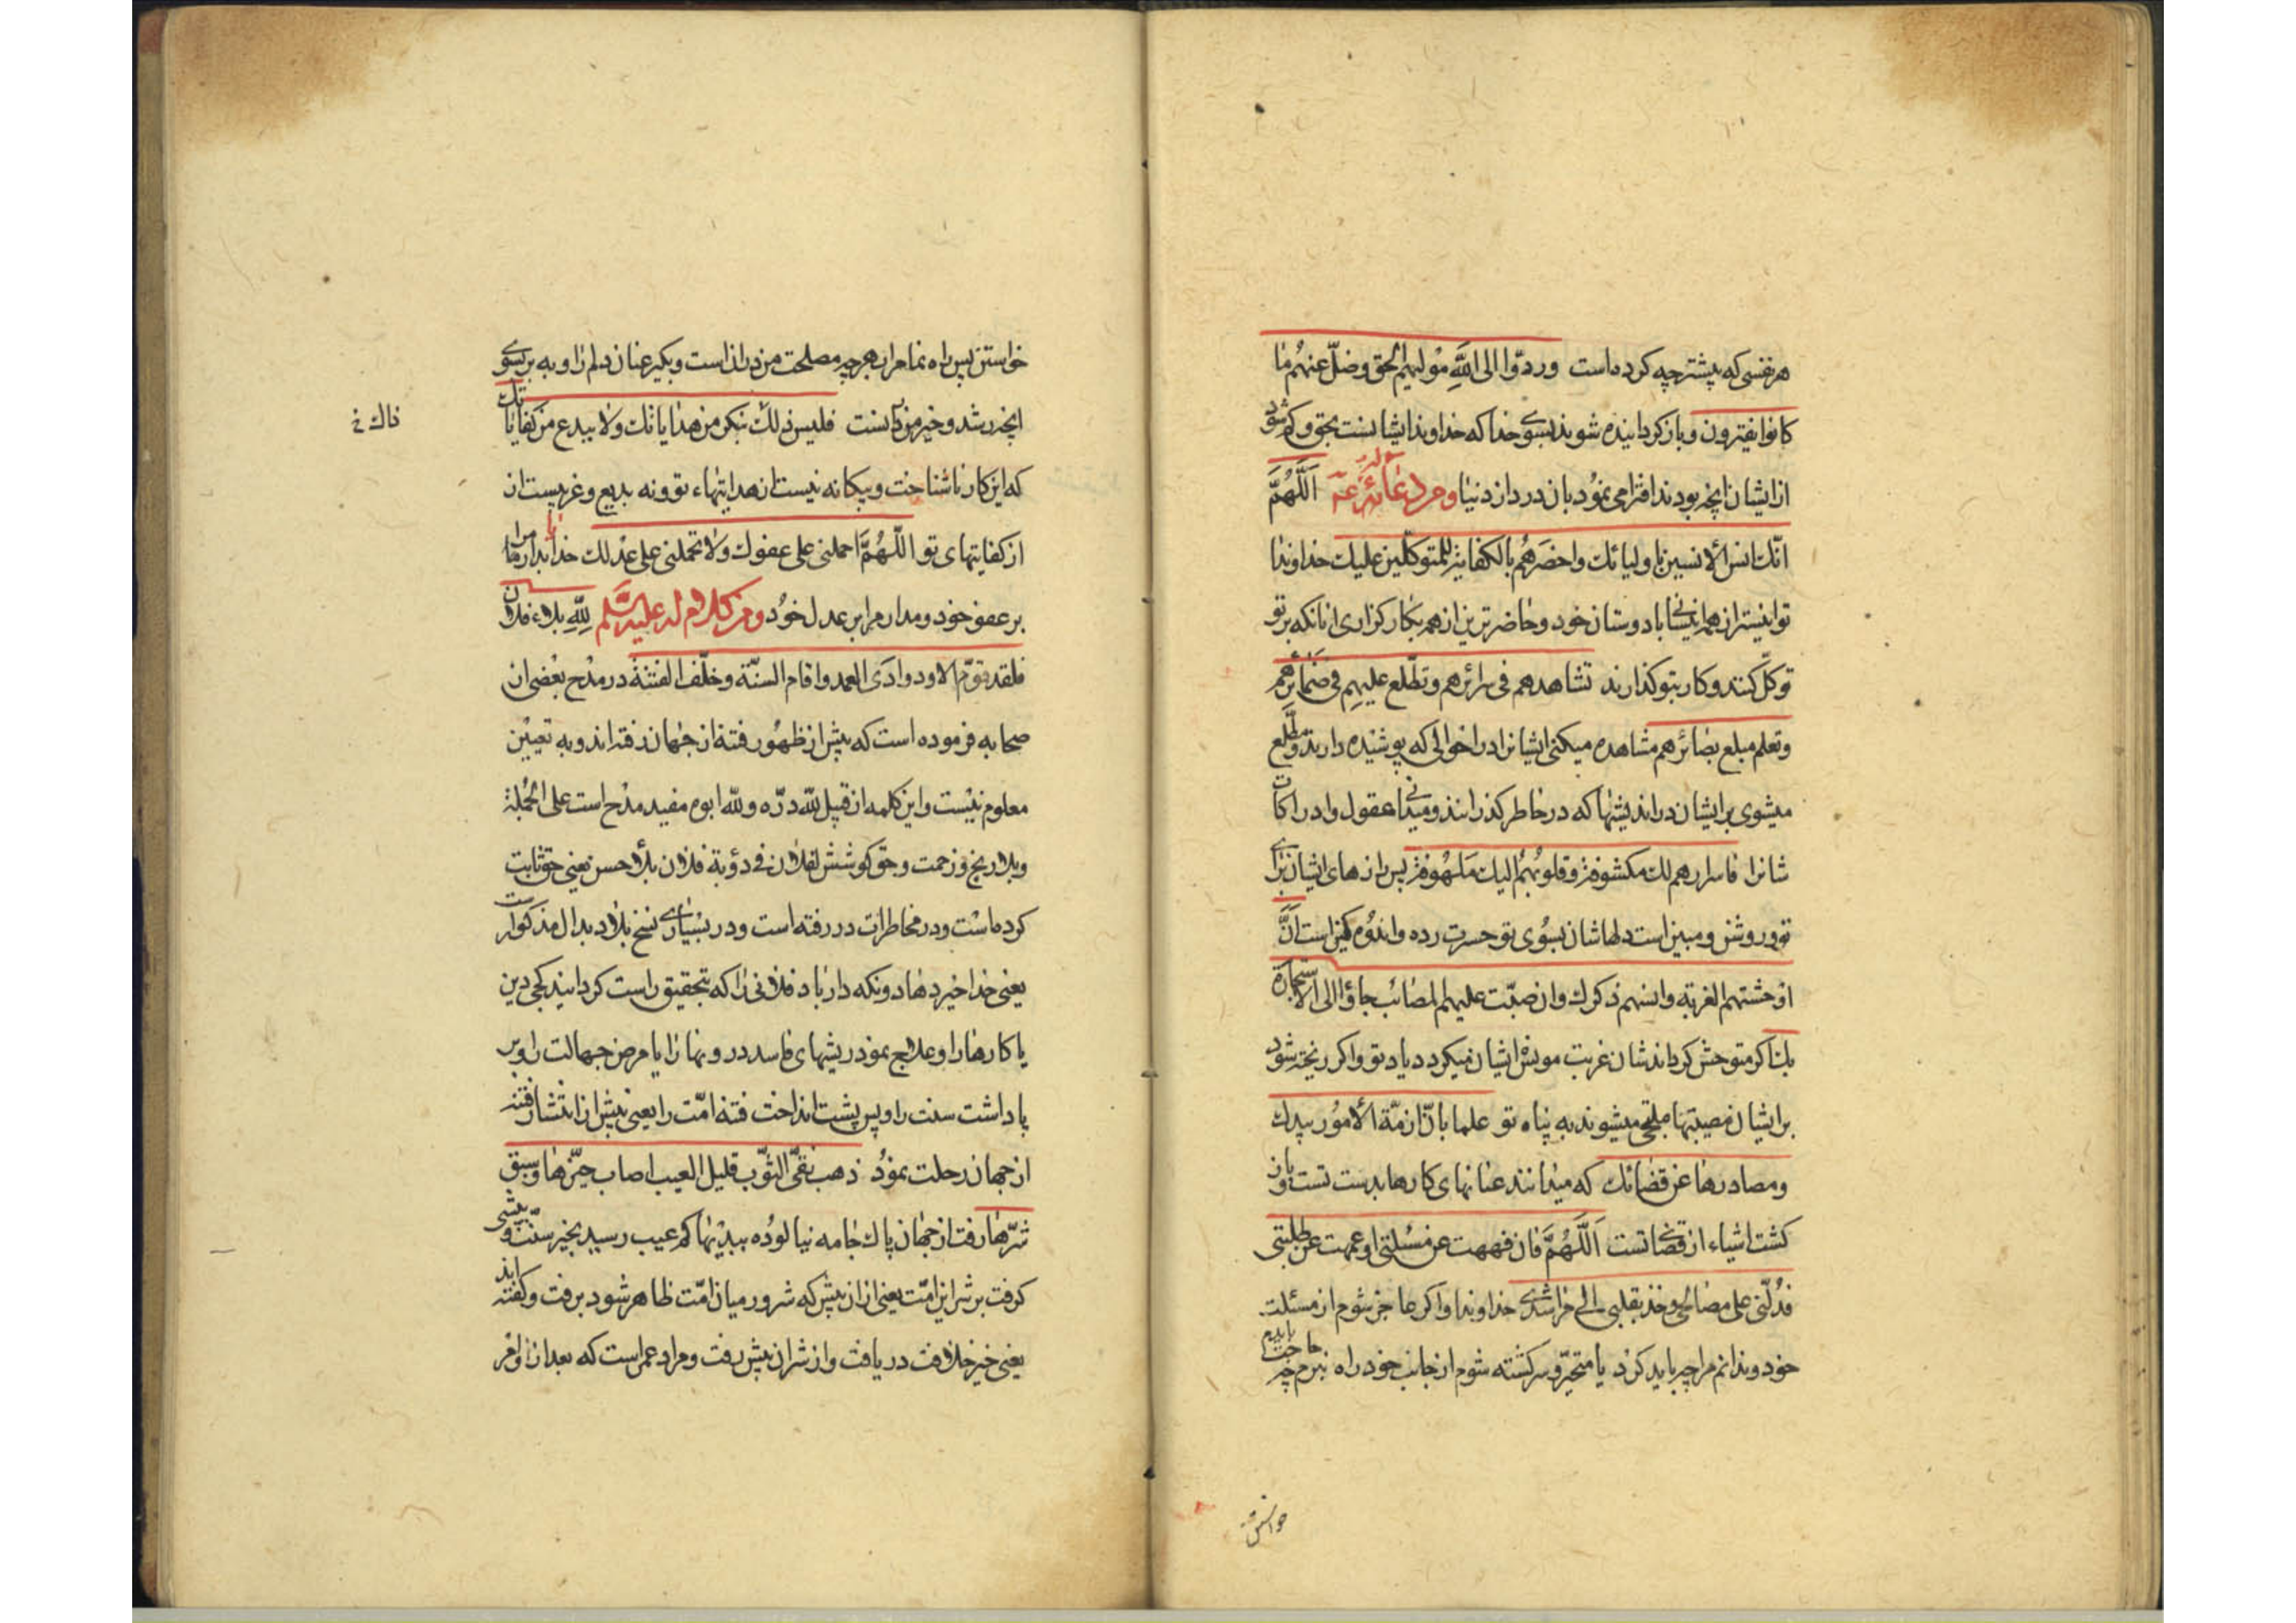 هر نفسی که پیشتر چه کرده است وردّوا الی اللّٰه مولیهم الحق وضلّ عنهم ما
کانوا یفترون وباز کردانیده شوند بسوی خدا که خداوند ایشانست بحق وکم شود
از ایشان آنچه بودند افترا می نمود بان در دار دنیا ومن دعائه عم اَللّٰهُمَّ
انّك انس الآنسین باولیائك واحضرهم بالکفایة للمتوکّلین علیك خداوندا
توانیستر از همه انیسانی بادوستان خود وحاضرترین از همه بکار کزاری از آنکه بر تو
توکّل کنند وکار بتو کذارند تشاهدهم فی سرائرهم وتطّلع علیهم فی ضمائرهم
وتعلم مبلغ بصائرهم مشاهده میکنی ایشانرا در احوالی که پوشیده دارند ومطّلع
میشوی بر ایشان در اندیشها که در خاطر کذرانند ومیدانی عقول وادراکات
شانرا فاسرارهم لك مکشوفة وقلوبهم الیك ملهوفة پس رازهای ایشان برای
تو روشن ومبین است دلهاشان بسوی تو حسرت زده واندوه کین است اَنَّ
اوحشتهم الغربة وانسهم ذکرك وان صبّت علیهم المصائب جاؤا الی الاستجارة
بك اکر متوحش کرداندشان غربت مونس ایشان میکردد یاد تو واکر ریخته شود
بر ایشان مصیبتها ملتجی میشوند به پناه تو علما بانّ ازمّة الامور بیدك
ومصادرها عن قضائك که میدانند عنانهای کارها بدست تست وباز
کشت اشیاء از قضای تست اَللّٰهُمَّ فان فههت عن مسئلتی او عمهت عن طلبتی
فدلّنی علی مصالحی وخذ بقلبی الی مراشدی خداوندا واکر عاجز شوم از مسئلت
خود وندانم مرا چه باید کرد یا متحیّر وسرکشته شوم از جانب خود راه نبرم چه حاجت بایدم
خواستن
خواستن پس راه نما مرا بهرچه مصلحت من در آن است وبکیر عنان دلم را وبه بر بسوی
آنچه رشد وخیر من در آنست فلیس ذلك بنکر من هدایاتك ولا ببدع من کفایاتك
ناك خ
که این کار ناشناخت وبیکانه نیست از هدایتهاء تو ونه بدیع وغریبست از
از کفایتهای تو اللّٰهُمَّ احملنی علی عفوك ولا تحملنی علی عدلك خدایا بدار مرا
بر عفو خود ومدار مرا بر عدل خود ومن کلام له علیه السّلم لِلّٰهِ بلاء فلان
فلقد قوّم الاود واداوی العمد واقام السنّة وخلّف الفتنة در مدح بعضی از
صحابه فرموده است که پیش از ظهور فتنه از جهان رفته اند وبه تعیین
معلوم نیست واین کلمه از قبیل للّه درّه وللّه ابوه مفید مدح است علی الجملة
وبلا رنج وزحمت وحق کوشش لفلان فی رؤبة فلان بلاء حسن یعنی حق ثابت
کرده است ودر مخاطرات در رفته است ودر بسیاری نسخ بلاد بدال مذکور است
یعنی خدا خیر دهاد ونکه داریاد فلانی را که بتحقیق راست کردانید کجی دین
یا کارها را وعلاج نمود ریشهای فاسد درونها را یا مرض جهالت را وبر
پا داشت سنت را وپس پشت انداخت فتنه امّت را یعنی پیش از انتشار فتنه
از جهان رحلت نمود ذهب نقیّ الثّوب قلیل العیب اصاب خیرها وسبق
شرّها رفت از جهان پاك جامه نیالوده ببدیها کم عیب رسید بخیر سنّت وپیشی
کرفت بر شر این امّت یعنی از آن پیش که شرور میان امّت ظاهر شود برفت وکفته اند
یعنی خیر خلافت دریافت واز شر آن پیش رفت ومراد عمر است که بعد از او امر